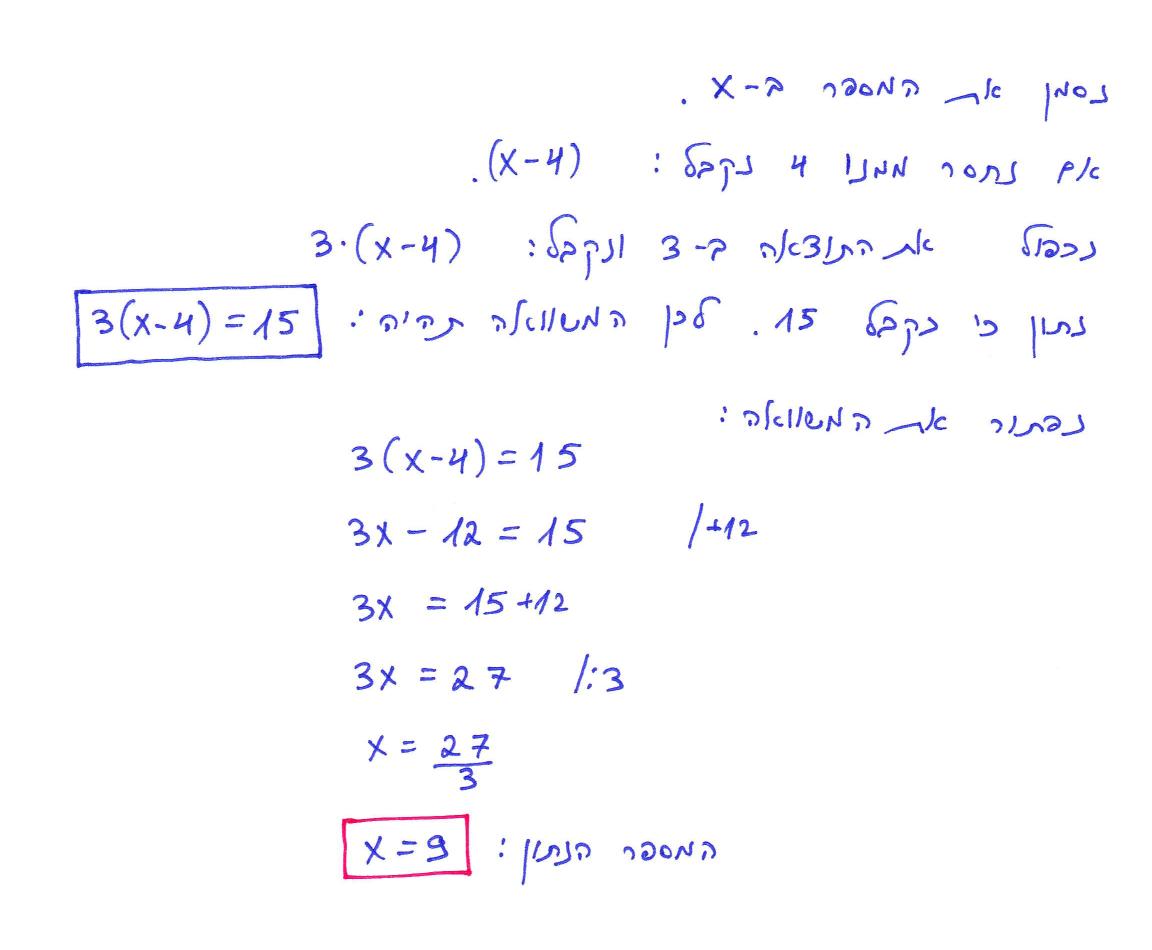 נסמן את המספר ב-x .
אם נחסר ממנו 4 נקבל : (x-4).
נכפול את התוצאה ב-3 ונקבל: 3·(x-4)
נתון כי נקבל 15 . לכן המשוואה תהיה : 3(x-4)=15
נפתור את המשוואה :
3(x-4)=15
3x - 12 = 15 /+12
3x = 15+12
3x = 27 /:3
x = 27/3
המספר הנתון : x=9